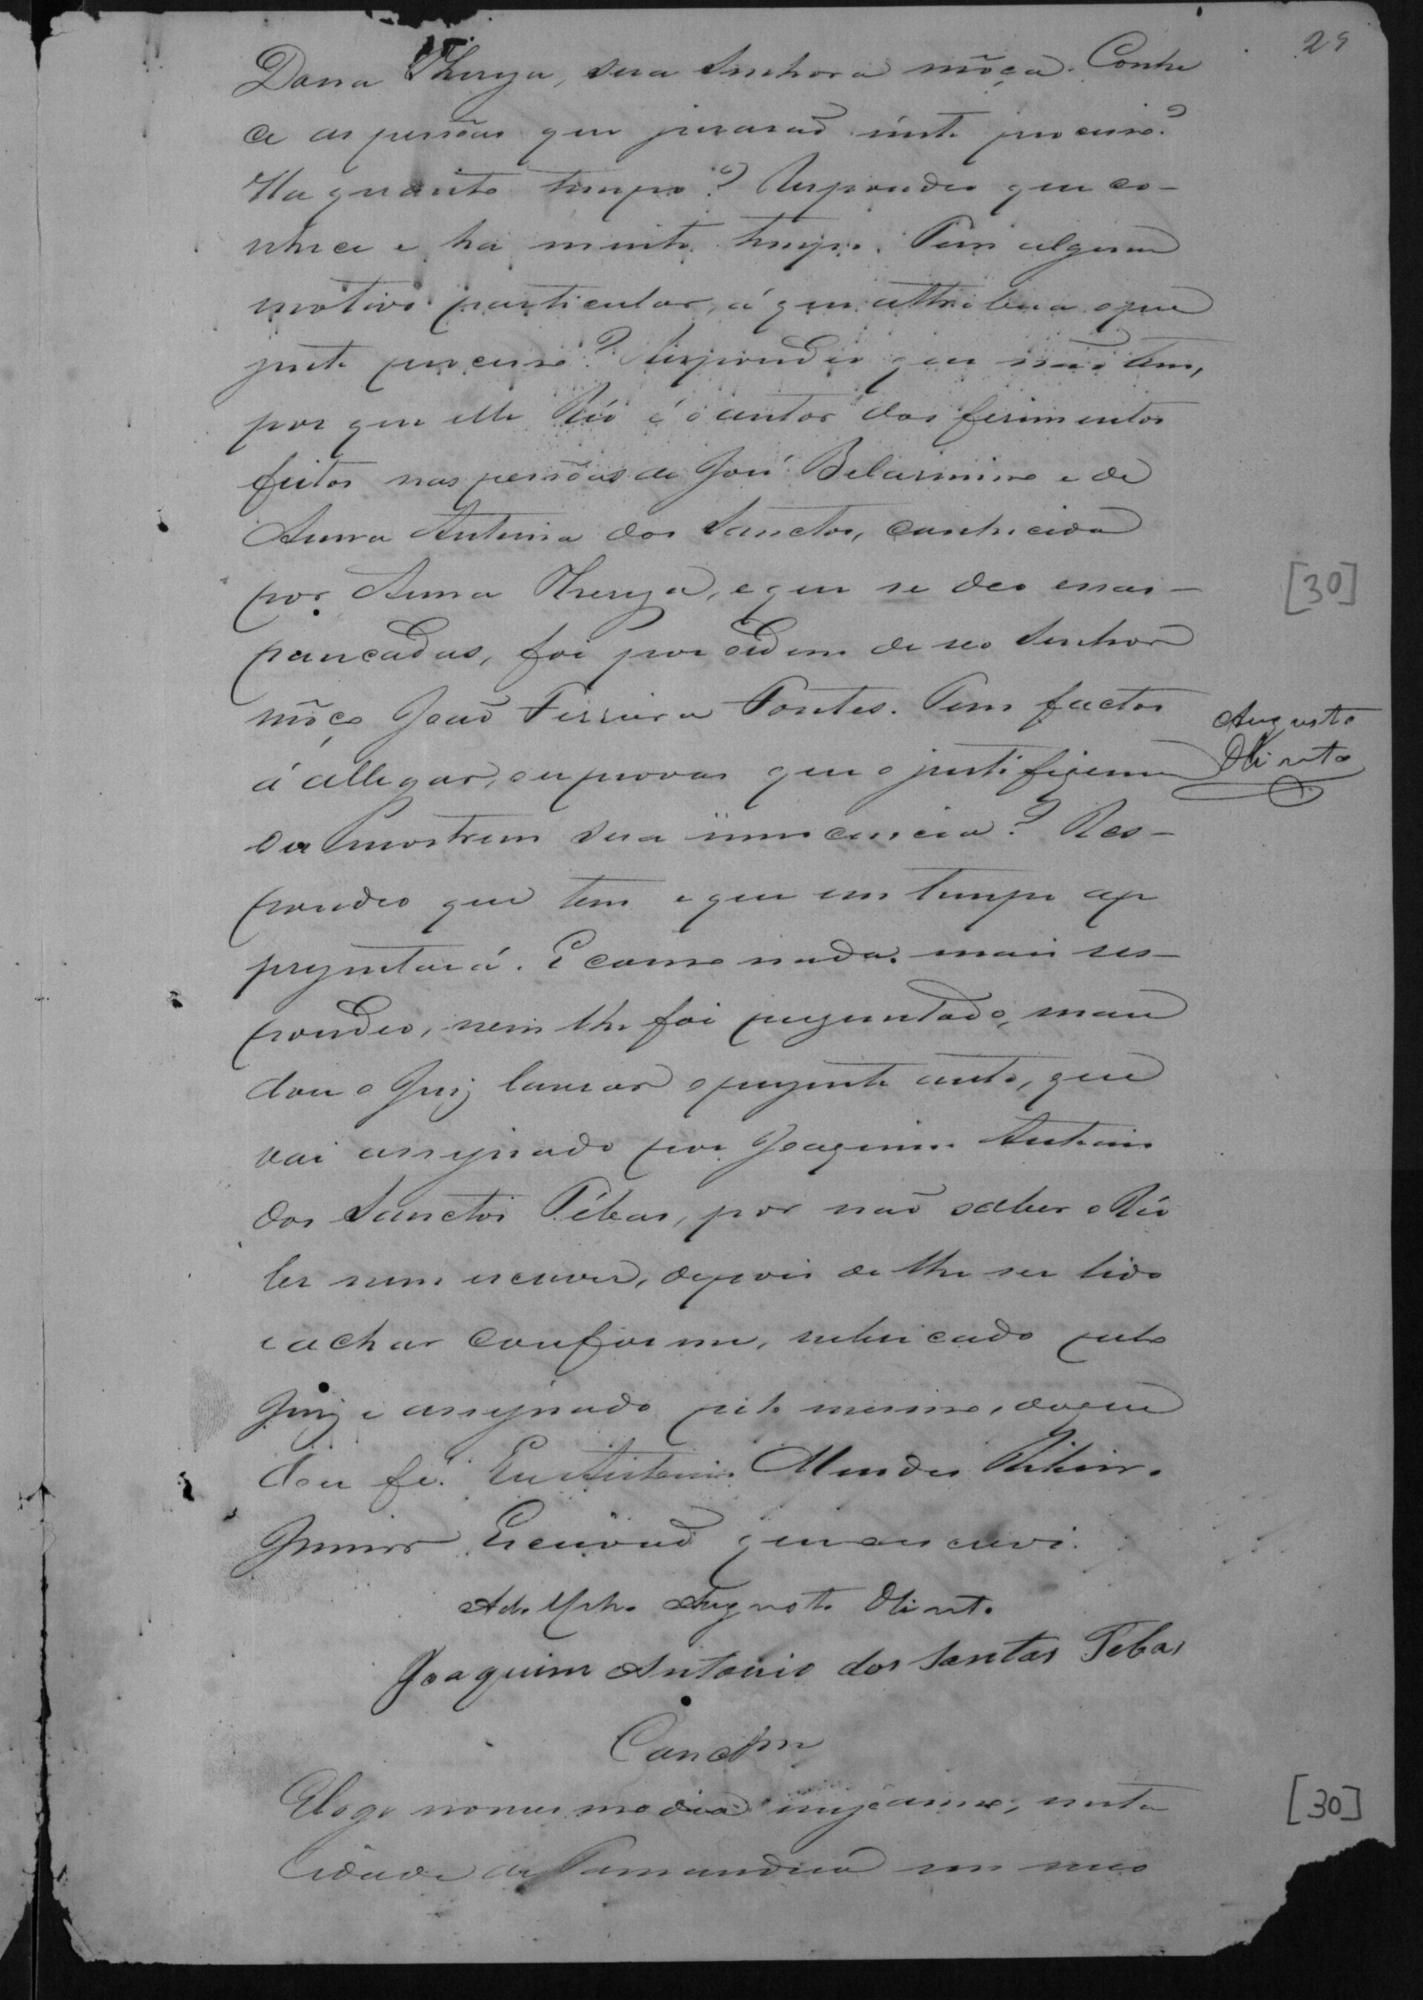 29
Dona Thereza, sua Senhora môça. Conhe
ce as pessôas que jurarão neste processo?
Ha quanto tempo? Respondeo que co-
nhece e ha muito tempo. Tem algum
motivo particular, á que attribua o pre
zente processo? Respondeo que não tem,
por que elle Réo é o autor dos ferimentos
feitos nas pessôas de José Belarmino e de
Anna Antonia dos Sanctos, conhecida
por Anna Thereza, e que se deo essas
pancadas, foi por ordem de seo Senhor
môço João Ferreira Fontes. Tem factos
á allegar, ou provas que o justifiquem
ou mostrem sua innocencia? Res-
pondeo que tem e que em tempo as
prezentará. E como nada mais res-
pondeo, nem lhe foi preguntado, man
dou o Juiz lavrar o prezente auto, que
vai assignado por Joaquim Antonio
dos Sanctos Tébas, por não saber o Réo
ler nem escrever, depois de lhe ser lido
e achar conforme, rubricado pelo
Juiz e assignado pelo mesmo, do que
dou fé. Eu Antonio Mendes Ribeiro
Junior Escrivão que escrevi.
Adolpho Augusto Olinto
Joaquim Antonio dos Santos Tebas
Concl.am
E logo no mesmo dia mez e anno, nesta
Cidade de Tamanduá em meo
[30]
Augusto
Olinto
[30]